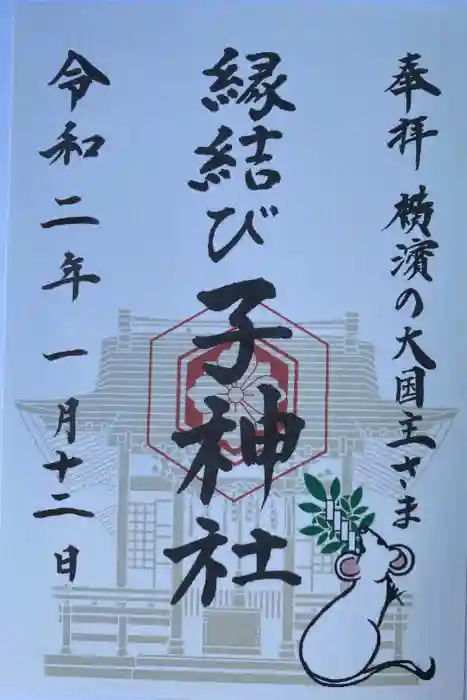 奉拝 横濱の大国主さま
縁結び子神社
令和二年一月十二日